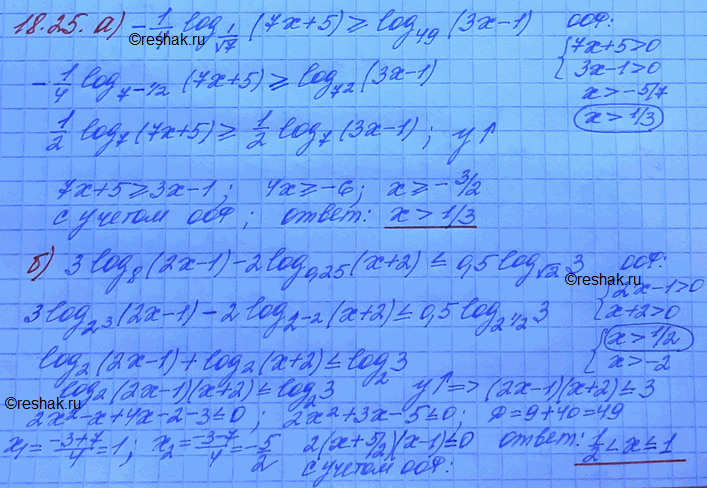 18.25. а) -1/4 log_{1/√7} (7x+5) ≥ log_{49} (3x-1) ООФ:
©reshak.ru
-1/4 log_{7^{-1/2}} (7x+5) ≥ log_{7^2} (3x-1) { 7x+5>0
3x-1>0
x>-5/7
1/2 log_7 (7x+5) ≥ 1/2 log_7 (3x-1); y↑ x>1/3
7x+5≥3x-1; 4x≥-6; x≥-3/2
с учетом ООФ; ответ: x>1/3
б) 3log_8 (2x-1)-2log_{0,25} (x+2) ≤ 0,5log_{√2} 3 ООФ:
©reshak.ru
3log_{2^3} (2x-1)-2log_{2^{-2}} (x+2) ≤ 0,5log_{2^{1/2}} 3 { 2x-1>0
x+2>0
log_2 (2x-1)+log_2 (x+2) ≤ log_2 3 { x>1/2
x>-2
log_2 (2x-1)(x+2) ≤ log_2 3 y↑ => (2x-1)(x+2) ≤ 3
©reshak.ru
2x²-x+4x-2-3≤0; 2x²+3x-5≤0; D=9+40=49
x_1=(-3+7)/4=1; x_2=(-3-7)/4=-5/2 2(x+5/2)(x-1)≤0 ответ: 1/2<x≤1
с учетом ООФ: